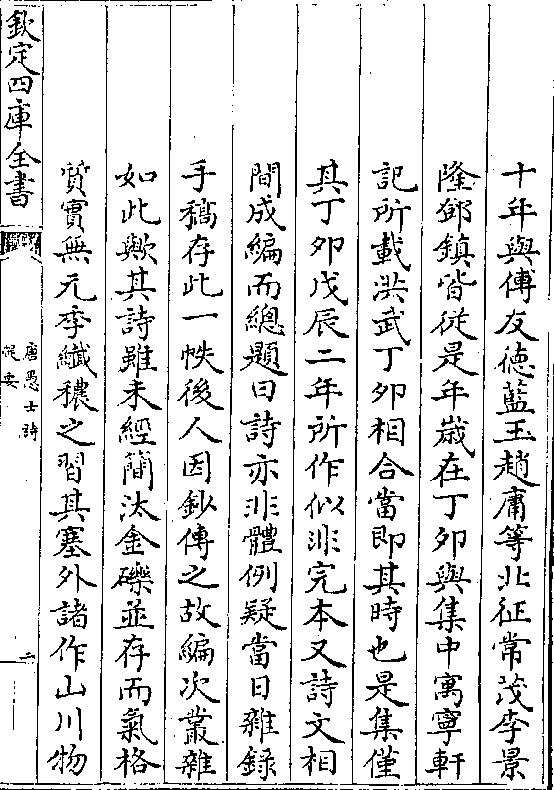 十年與傅友德藍玉趙庸等北征常茂李景
隆鄧鎮皆從是年歲在丁卯與集中寓寧軒
記所載洪武丁卯相合當即其時也是集僅
其丁卯戊辰二年所作似非完本又詩文相
間成編而總題曰詩亦非體例疑當日雜錄
手稿存此一帙後人因鈔傳之故編次叢雜
如此歟其詩雖未經簡汰金礫並存而氣格
質實無元季纖穠之習其塞外諸作山川物
欽定四庫全書
唐愚士詩
提要
二